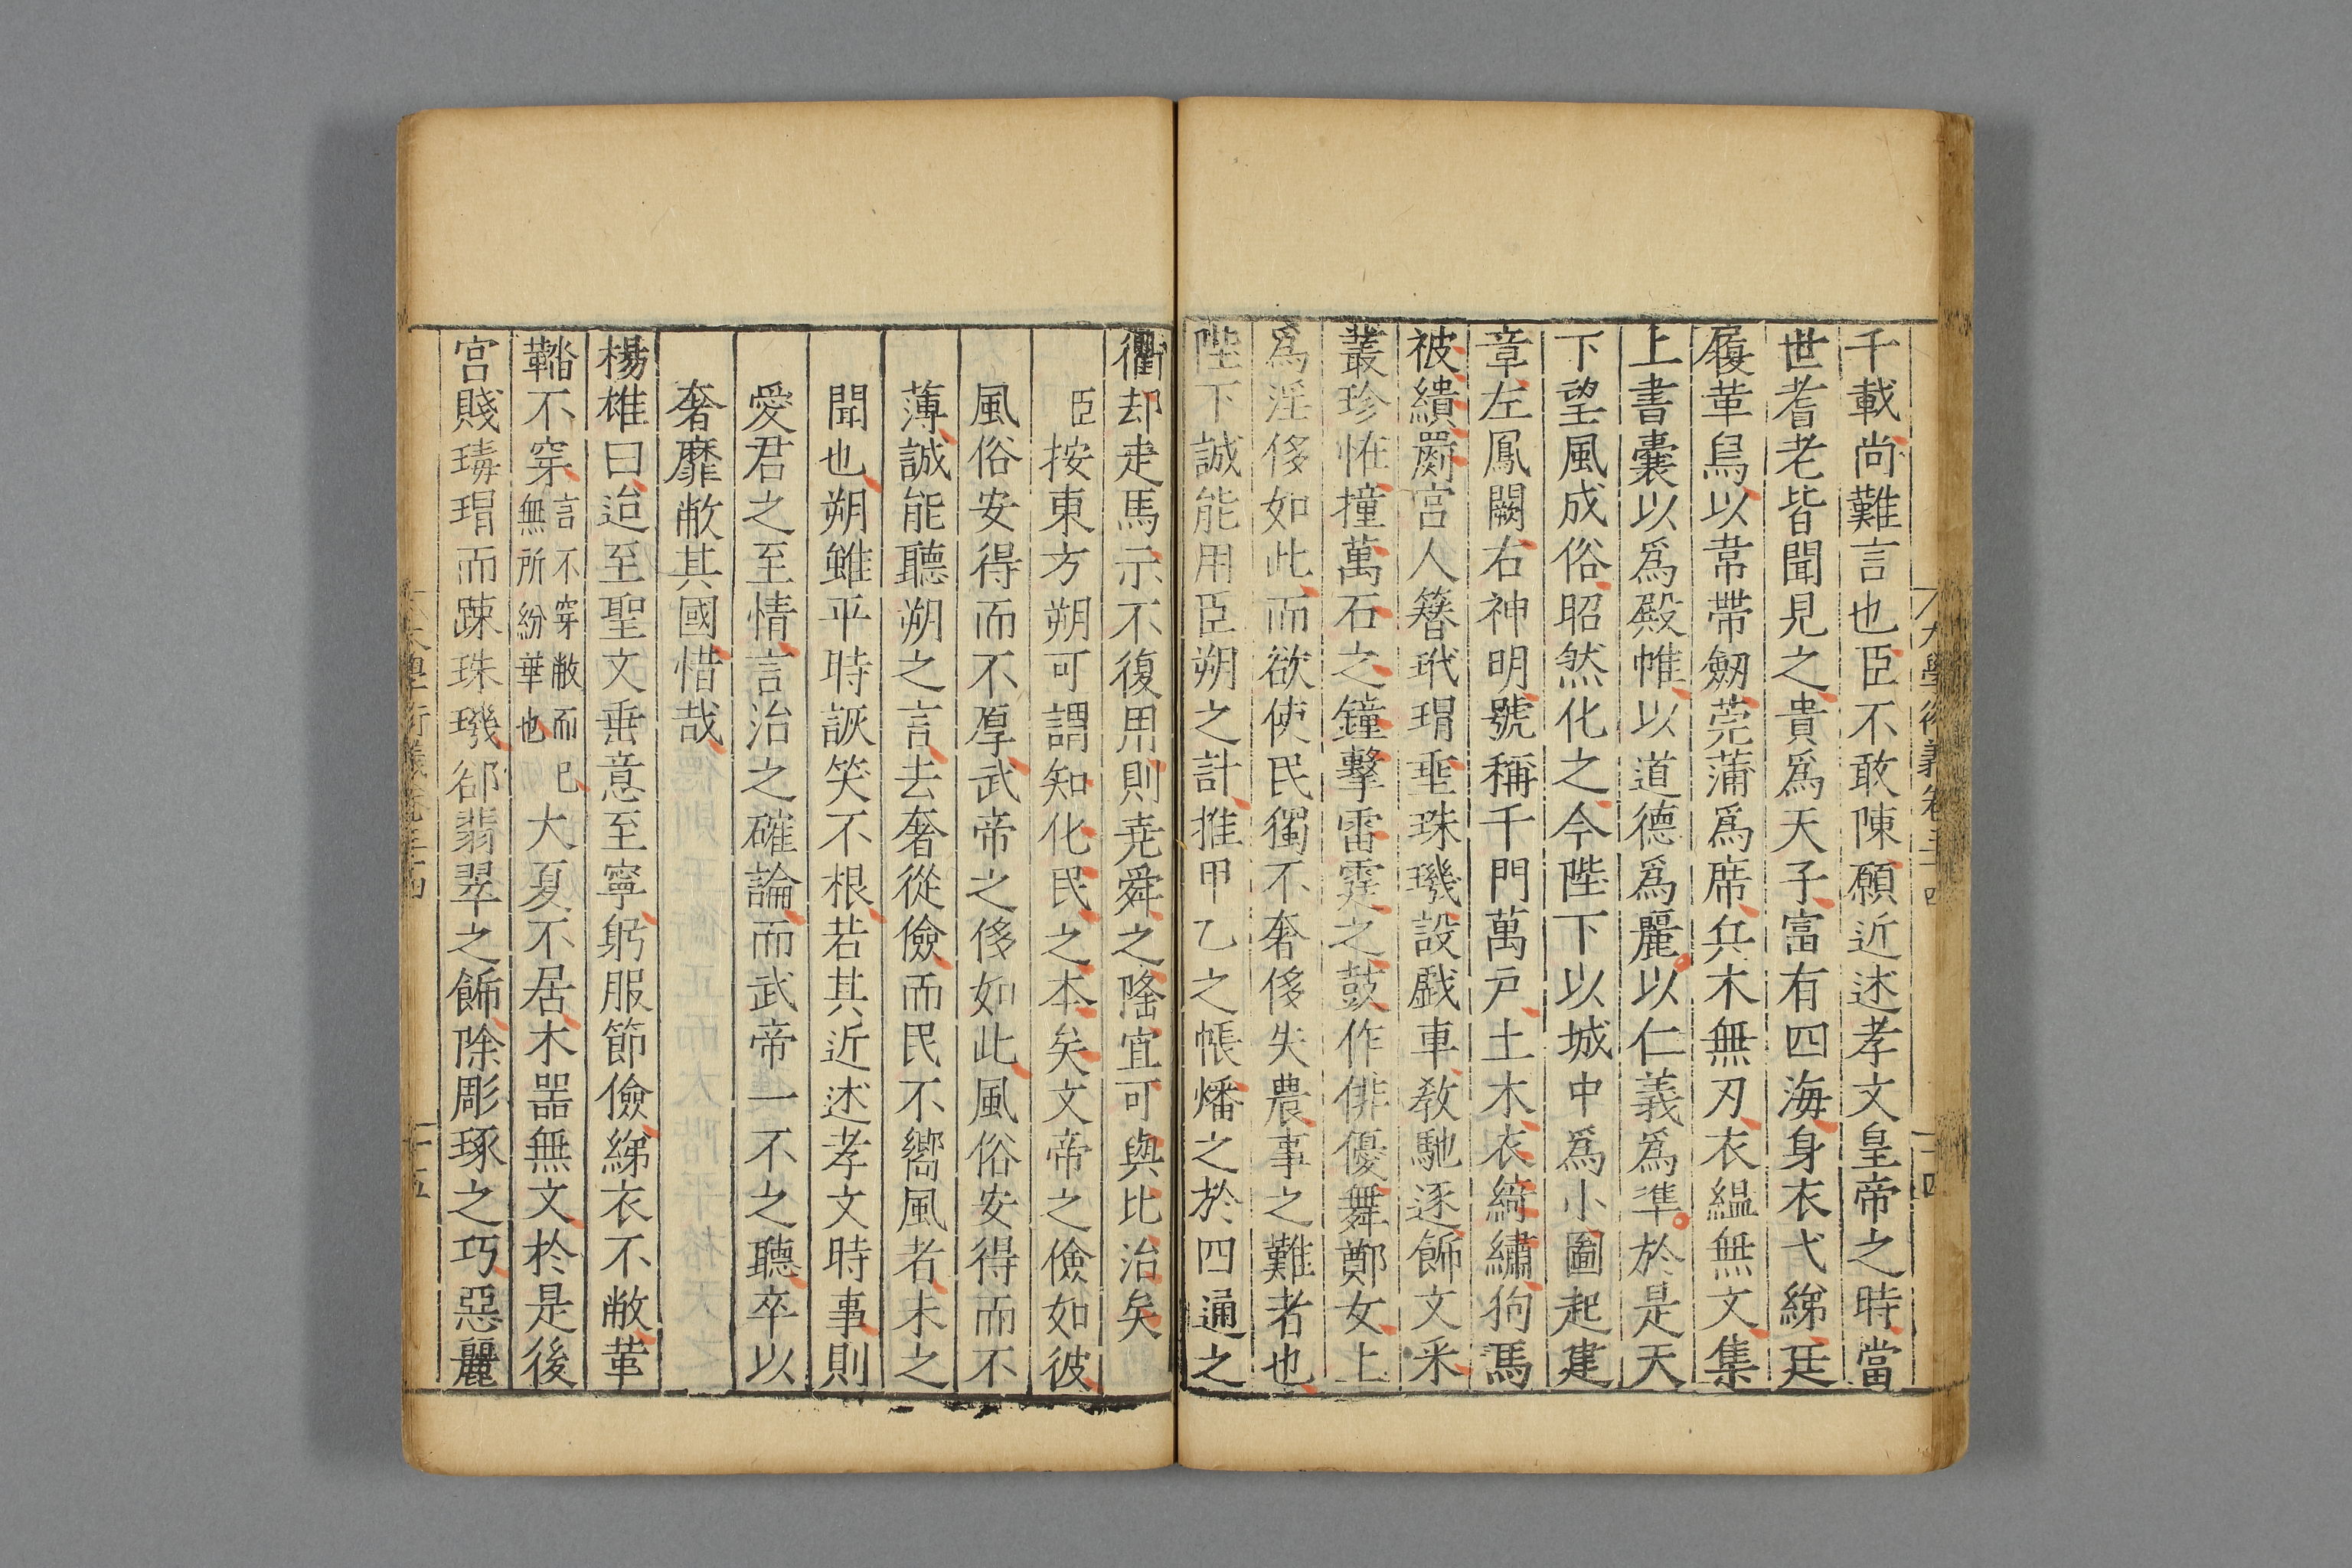 千載尚難言也臣不敢陳願近述孝文皇帝之時當
世耆老皆聞見之貴爲天子富有四海身衣弋綈廷
履革舄以常帶劒莞蒲爲席兵木無刃衣緼無文集
上書囊以爲殿帷以道德爲麗以仁義爲準於是天
下望風成俗昭然化之今陛下以城中爲小圖起建
章左鳳闕右神明號稱千門萬戸土木衣綺繡狗馬
被繢罽宮人簪玳瑁垂珠璣設戯車敎馳逐飾文采
叢珍恠撞萬石之鐘擊雷霆之鼓作俳優舞鄭女上
爲淫侈如此而欲使民獨不奢侈失農事之難者也
陛下誠能用臣朔之計推甲乙之帳燔之於四通之
衢却走馬示不復用則尭舜之隆宜可與比治矣
臣按東方朔可謂知化民之本矣文帝之儉如彼
風俗安得而不厚武帝之侈如此風俗安得而不
薄誠能聽朔之言去奢從儉而民不嚮風者未之
聞也朔雖平時詼笑不根若其近述孝文時事則
愛君之至情言治之確論而武帝一不之聽卒以
奢靡敝其國惜哉
楊雄曰迨至聖文垂意至寧躬服節儉綈衣不敝革
鞜不穿言不穿敝而已無所紛華也大夏不居木器無文於是後
宮賤瑇瑁而踈珠璣郤翡翠之飾除彫琢之巧惡麗